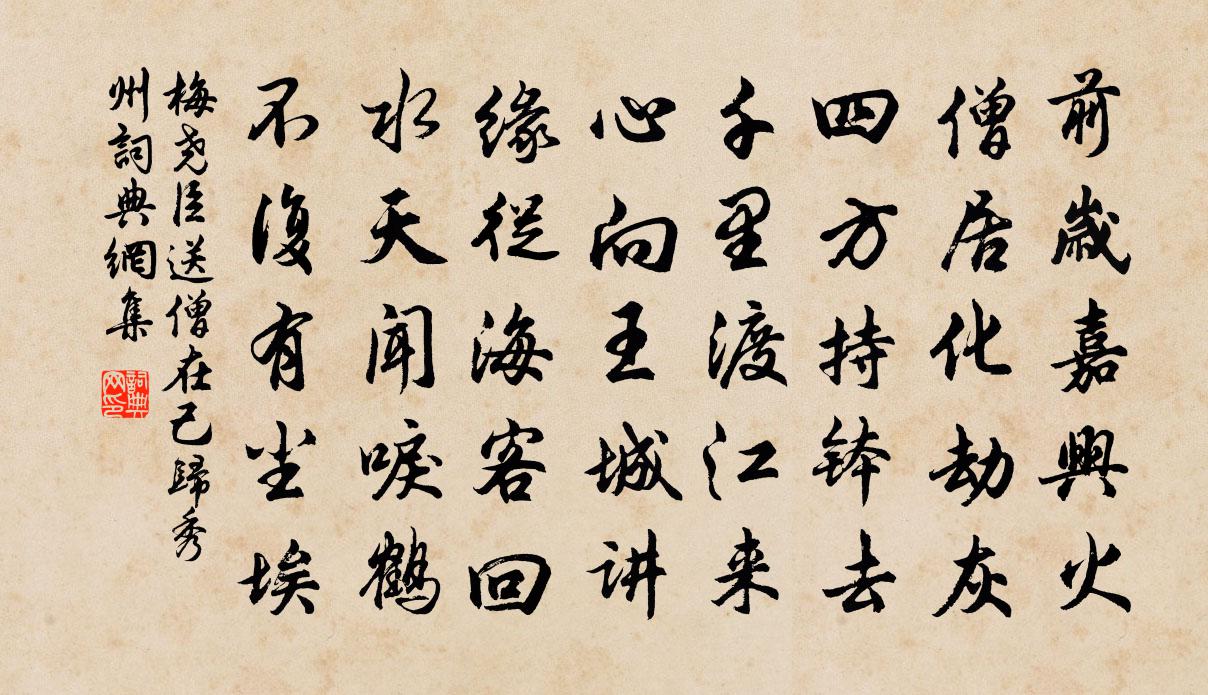 前歲嘉興火
僧居化劫灰
四方持鉢去
千里渡江来
心向王城讲
缘從海客回
水天聞唳鶴
不復有尘埃
梅尧臣送僧在己歸秀
州詞典網集
詞典
网印